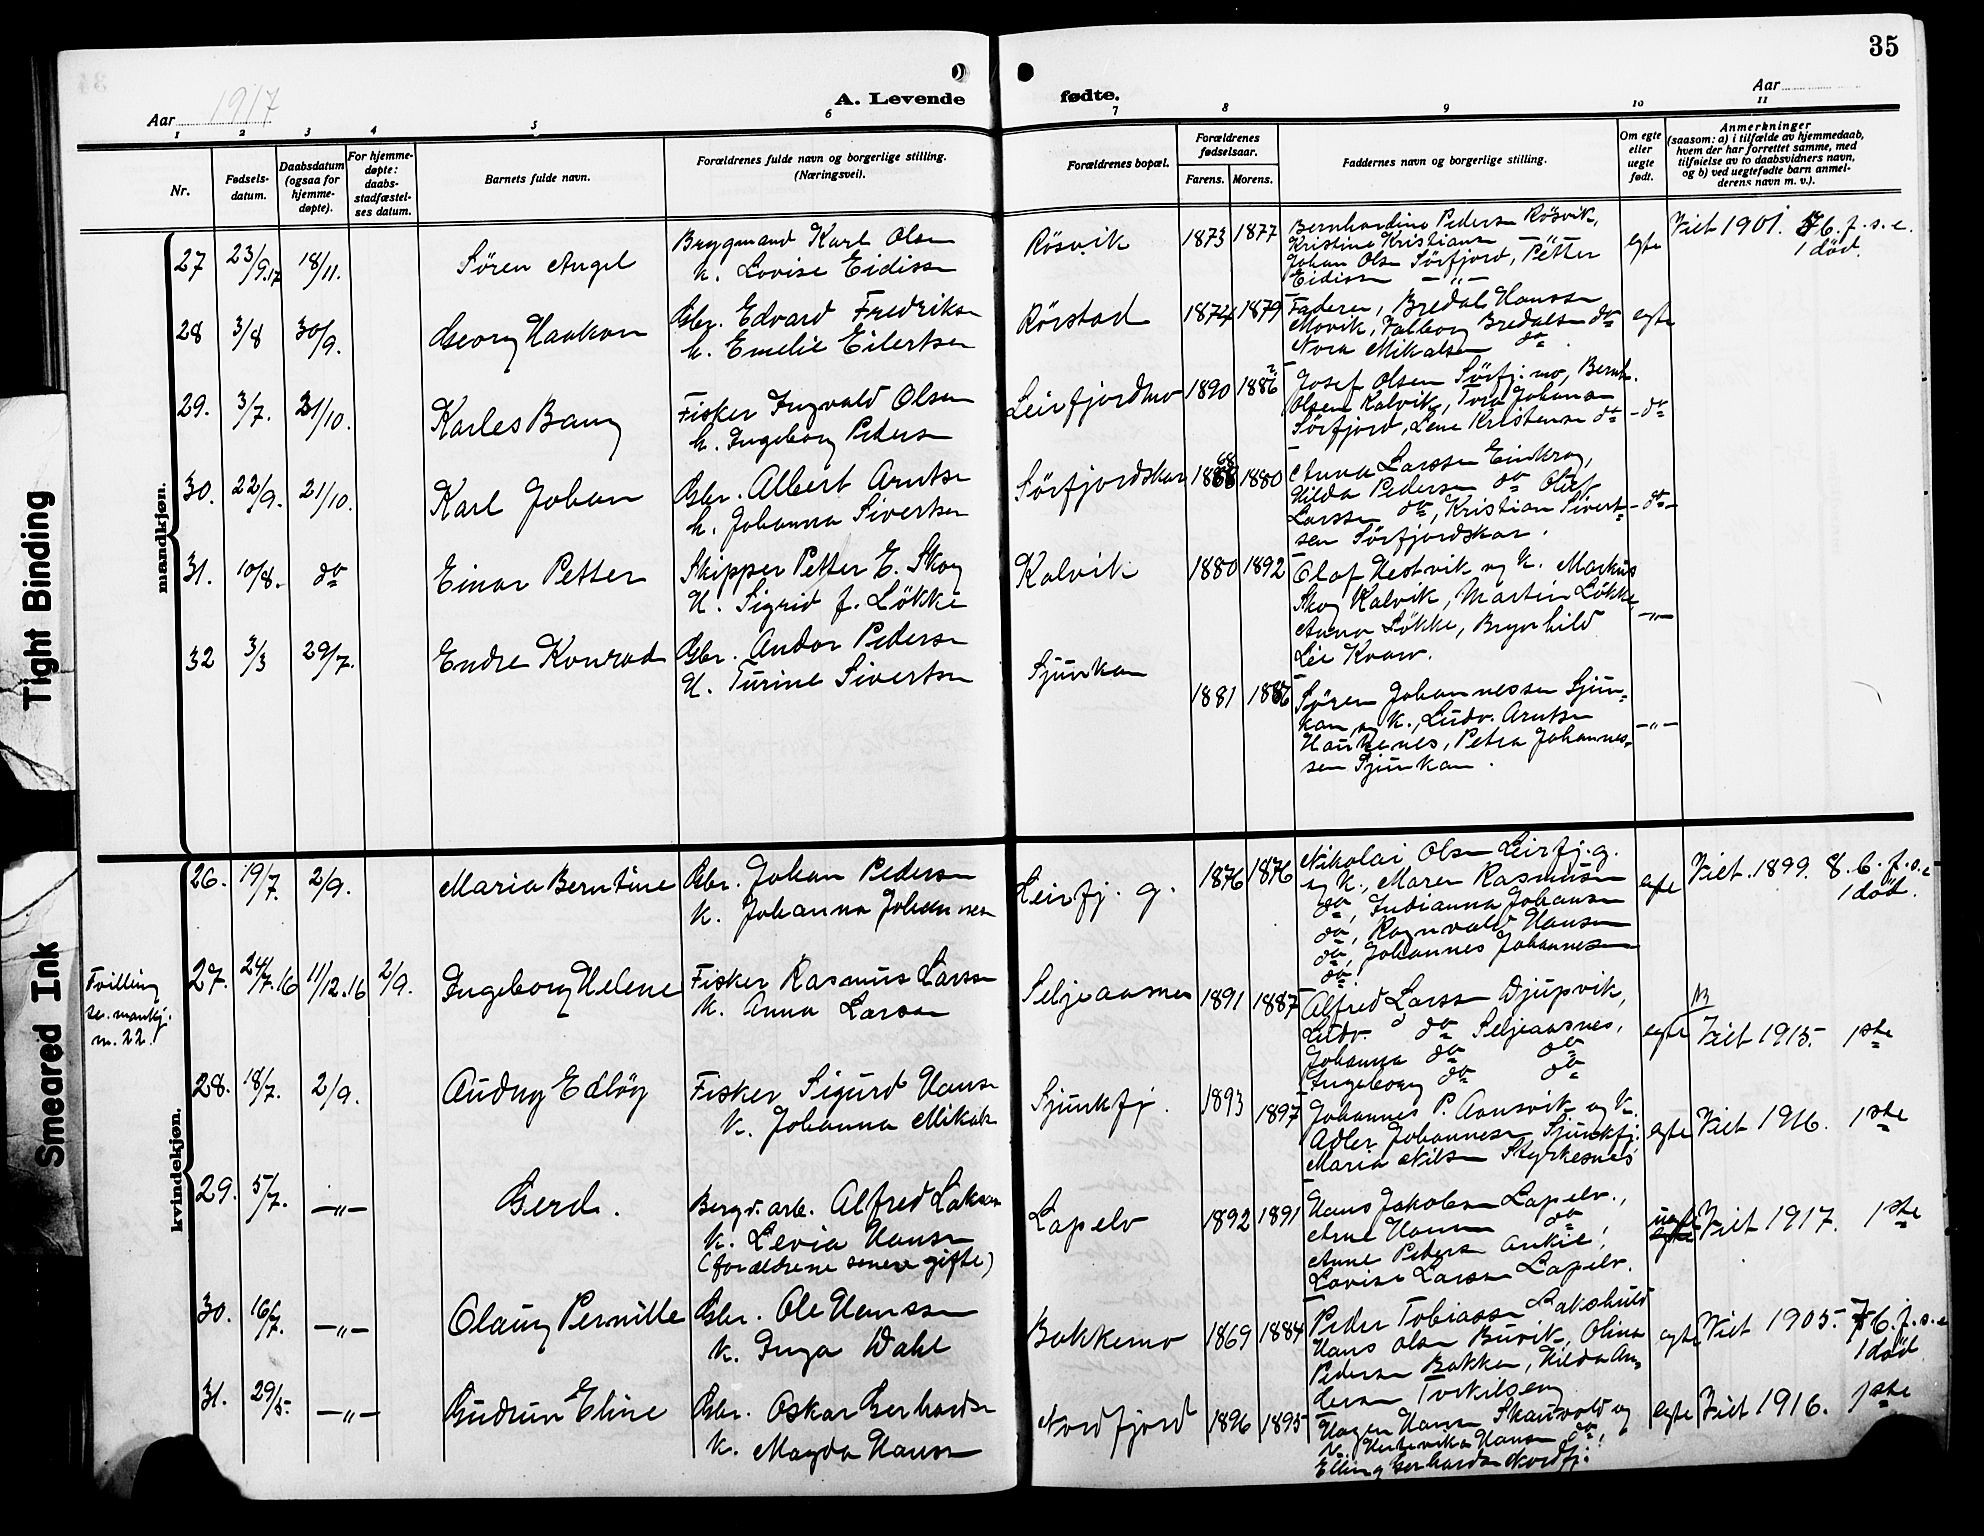 35
Aar 1917
A. Levende
fødte.
Aar
1 2 3 4 5 6 7 8 9 10 11
Nr.
Fødsels-
datum.
Daabsdatum
(ogsaa for
hjemme-
døpte).
For hjemme-
døpte:
daabs-
stadfæstel-
ses datum.
Barnets fulde navn.
Forældrenes fulde navn og borgerlige stilling.
(Næringsvei).
Forældrenes bopæl.
Forældrenes
fødselsaar.
Farens. Morens.
Faddernes navn og borgerlige stilling.
Om egte
eller
uegte
født.
Anmerkninger
(saasom: a) i tilfælde av hjemmedaab,
hvem der har forrettet samme, med
tilføielse av to daabsvidners navn,
og b) ved uegtefødte barn anmel-
derens navn m. v.).
mandkjøn.
27 23/9.17 18/11. Søren Angel
Brygmand Karl Olsen
h. Lovise Eidissen
Røsvik 1873 1877
Bernhardine Pedersen Røsvik,
Kristine Kristiansen —"—
Johan Olsen Sørfjord, Petter
Eidissen —"—
egte
Viet 1901. 6. f. s. e.
1 død.
28 3/8 30/9. Georg Haakon
Gbr. Edvard Fredriksen
h. Emelie Eilertsen
Rørstad 1874 1879
Faderen, Bredal Hanssen
Movik, Valborg Bredalsen do
Nora Mikalsen do
egte
29. 3/7. 21/10. Karles Bang
Fisker Ingvald Olsen
h. Ingeborg Pedersen
Leirfjordmo 1890 1886
Josef Olsen Sørfj: mo, Bernh.
Olsen Kalvik, Tora Johansen
Sørfjord, Lene Kristensen do
- do
30. 22/9. 21/10. Karl Johan
Gbr. Albert Arntsen
h. Johanna Sivertsen
Sørfjordskar 1888 1880
Anna Larssen Einkrog,
Hilda Pedersen do Olaf
Larssen do, Kristian Sivert-
sen Sørfjordskar.
- do -
31. 10/8. do Einar Petter
Skipper Petter E. Skog
H. Sigrid f. Løkke
Kalvik 1880 1892
Olaf Hestvik og h. Markus
Skog Kalvik, Martin Løkke
Anna Løkke, Brynhild
Lie Kvarv.
—"—
32 3/3 29/7. Endre Konrad
Gbr. Andor Pedersen
H. Turine Sivertsen
Sjunkan
1881 1886
Søren Johannessen Sjun-
kan og h., Ludv. Arntsen
Haukenes, Petra Johannes-
sen Sjunkan.
—"—
kvindekjøn.
26. 19/7. 2/9. Maria Berntine
Gbr. Johan Pedersen
h. Johanna Johannesen
Leirfj. g. 1876 1876
Nikolai Olsen Leirfj. g.
og h., Maren Rasmussen
do, Indianna Johansen
do, Ragnvald Hansen
do, Johannes Johannesen
do
egte
Viet 1899. 8. b. f. s. e
1 død.
Tvilling
se. mankj.
nr. 22.
27. 24/7.16 11/12.16 2/9. Ingeborg Helene
Fisker Rasmus Larssen
h. Anna Larsen
Seljeaasnes 1891 1887
Alfred Larssen Djupvik,
Ludv. do Seljeaasnes,
Johanna do do
Ingeborg do do
egte
Viet 1915. 1ste
28. 18/7. 2/9. Audny Edløg
Fisker Sigurd Hansen
h. Johanna Mikals
Sjunkfj. 1893 1897
Johannes P. Aansvik og h.
Adler Johannesen Sjunkfj.
Maria Nilsen Styrkesnes
egte
Viet 1916. 1ste
29. 5/7. —"— Gerd.
Bergv. arb. Alfred Laksen
h. Levia Hansen
(forældrene senere gifte)
Lapelv 1892 1891
Hans Jakobsen Lapelv.,
Arne Hansen do
Anne Pedersen
Lovise Larssen Lapelv.
uegte
Viet 1917. 1ste
30. 16/7. —"— Olaug Pernille
Gbr. Ole Hanssen
h. Inga Dahl
Bakkemo 1869 1884
Peder Tobiassen Lakshuld
Hans Olsen Burvik, Olina
Pedersen Bakken, Hilda An-
dersen Torkilseng
egte
Viet 1905. 7 b. f. s. e
1 død
31. 29/5. —"— Gudrun Eline
Gbr. Oskar Gerhardsen
h. Magda Hansen
Nordfjord 1896 1895
Hagen Hansen Skauvold og
h. Hansen do,
Elling Gerhardsen Nordfj.
egte
Viet 1916. 1ste
Tight Binding
Smeared Ink